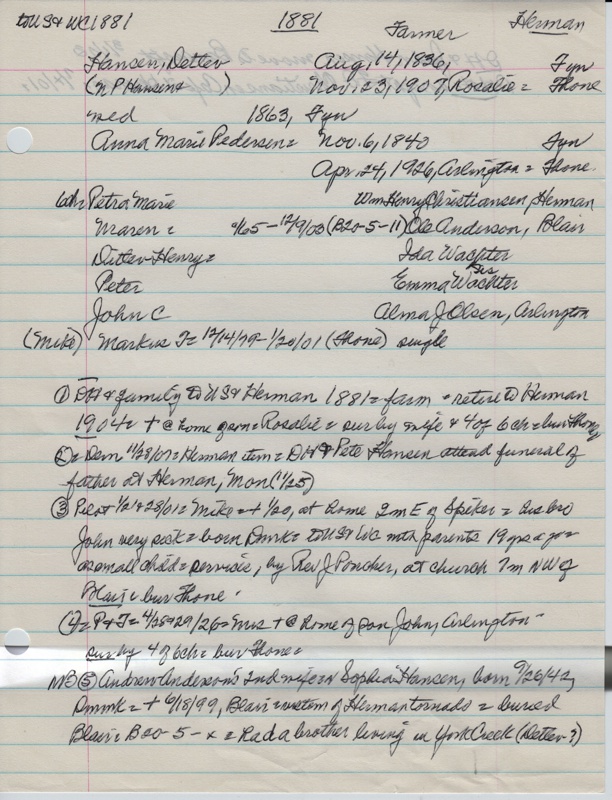 to US & WC 1881 1881 Farmer Herman
Hansen, Detlev Aug, 14, 1836, Fyn
(N P Hansens ) Nov. 23, 1907, Rosalie = Fhone
med 1863, Fyn
Anna Marie Pedersen = Nov. 6, 1840 Fyn
Apr. 24, 1926, Arlington = Fhone.
6ch = Petra Marie Wm Henry Christiansen, Herman
Maren = 9/65 - 12/9/03 (B20-5-11) Ole Anderson, Blair
Ditlev Henry = Ida Wachter
sis
Peter Emma Wachter
John C Alma J Olsen, Arlington
(Mike) Markus T = 12/14/79 - 1/20/01 (Fhone) single
① DH & family to US & Herman 1881 = farm = retire to Herman
1904 = + @ home of son = Rosalie = sur by wife & 4 of 6 ch = bur Fhone
② = Dem 11/28/07 = Herman item = DH & Pete Hansen attend funeral of
father at Herman, Mon (11/25)
③ Pilot 1/21 & 28/01 = Mike = + 1/20, at home 2 m E of Spiker = his bro
John very sick = born Dmrk = to US & WC with parents 19 yrs ago =
as small child = services, by Rev J Poucher, at church 7 m NW of
Blair = bur Fhone.
④ = P & T = 4/28 & 29/26 = Mrs + @ home of son John, Arlington -
sur by 4 of 6 ch = bur Fhone =
NB ⑤ Andrew Anderson's 2nd wife = Sophia Hansen, born 9/26/42,
Dmrk = + 6/18/99, Blair = victim of Herman tornado = buried
Blair = B20 - 5 - x = Had a brother living in York Creek (Detlev?)